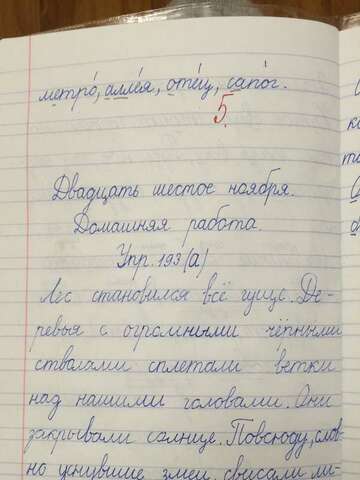 метро́, алле́я, оте́ц, сапо́г.
5
Двадцать шестое ноября.
Домашняя работа.
Упр. 193 (а)
Лес становился всё гуще. Де-
ревья с огромными чёрными
стволами сплетали ветки
над нашими головами. Они
закрывали солнце. Повсюду, слов-
но уснувшие змеи, свисали ли-